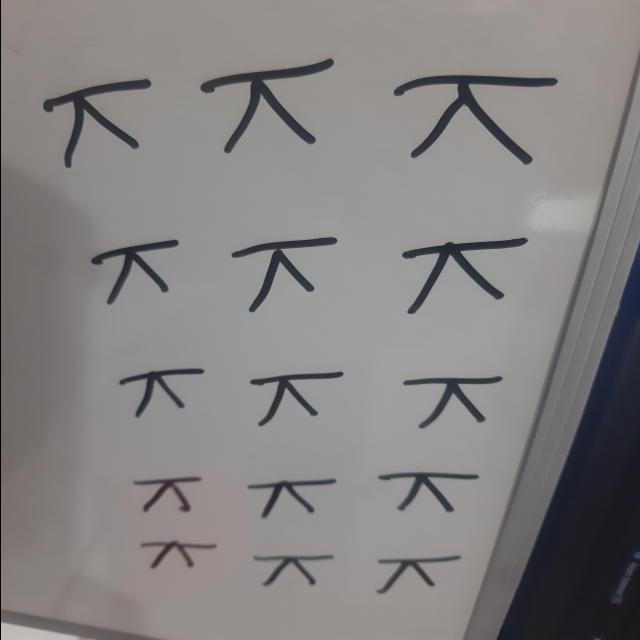 ㅈ ㅈ ㅈ
ㅈ ㅈ ㅈ
ㅈ ㅈ ㅈ
ㅈ ㅈ ㅈ
ㅈ ㅈ ㅈ